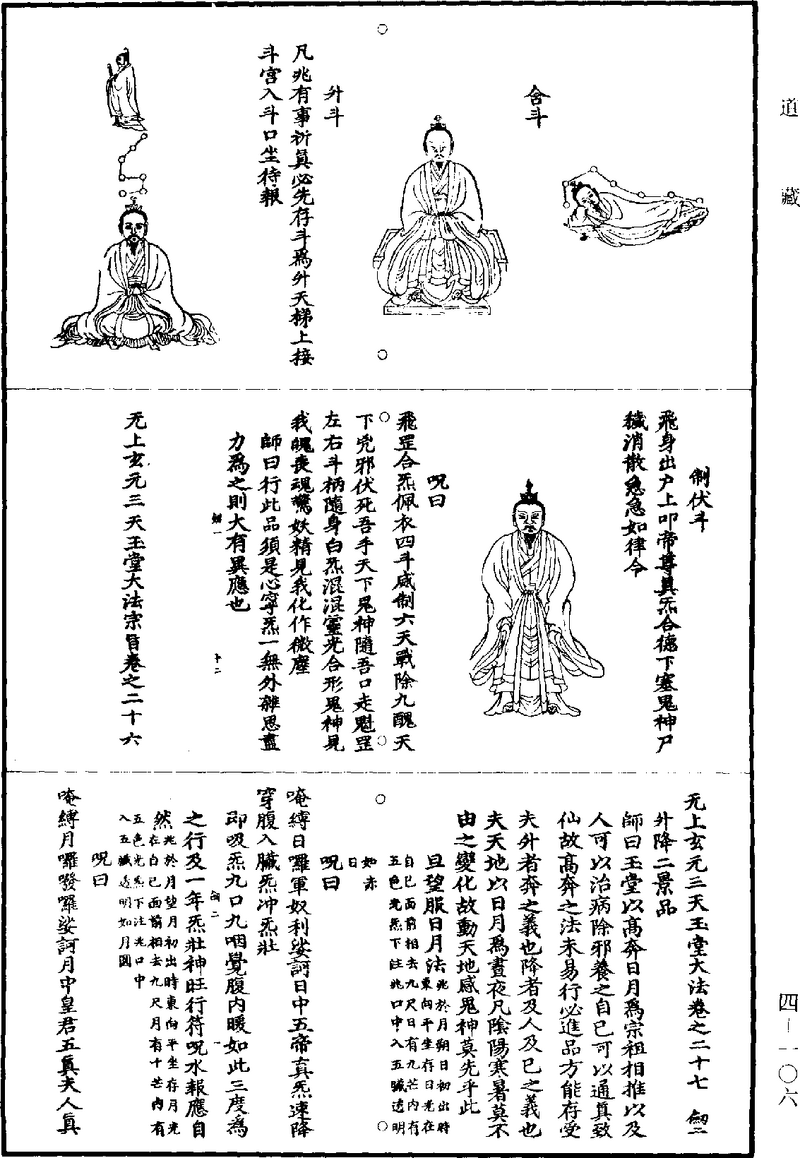 道藏
舍斗
升斗
凡兆有事祈眞必先存斗爲升天梯上接
斗宮入斗口坐待報
制伏斗
飛身出戶上叩帝尊真炁合德下塞鬼神尸
穢消散急急如律令
呪曰
飛罡合炁佩衣四斗威制六天戰除九醜天
下兇邪伏死吾手天下鬼神隨吾口走魁罡
左右斗柄隨身白炁混混靈光合形鬼神見
我魄喪魂驚妖精見我化作微塵
師曰行此品須是心寧炁一無外雜思盡
力爲之則大有異應也
十二
无上玄元三天玉堂大法宗旨卷之二十六
无上玄元三天玉堂大法卷之二十七
升降二景品
師曰玉堂以高奔日月爲宗祖相推以及
人可以治病除邪養之自己可以通真致
仙故高奔之法未易行必進品方能存受
夫升者奔之義也降者及人及己之義也
夫天地以日月爲晝夜凡陰陽寒暑莫不
由之變化故動天地感鬼神莫先乎此
旦望服日月法兆於月朔日初出時東向平坐存日光在
自己面前相去九尺日有九芒內有五色光炁下注兆口中入五臟透明
如赤日
呪曰
唵縛日囉軍奴利娑訶日中五帝真炁速降
穿腹入臟炁冲炁壯
即吸炁九口九咽覺腹內暖如此三度爲
之行及一年炁壯神旺行符呪水報應自
然兆於月望月初出時東向平坐存月光在自己面前相去九尺月有十芒內有
五色光炁下注兆口中入五臟透明如月圓
呪曰
唵縛月囉發囉娑訶月中皇君五真夫人真
四—一〇六